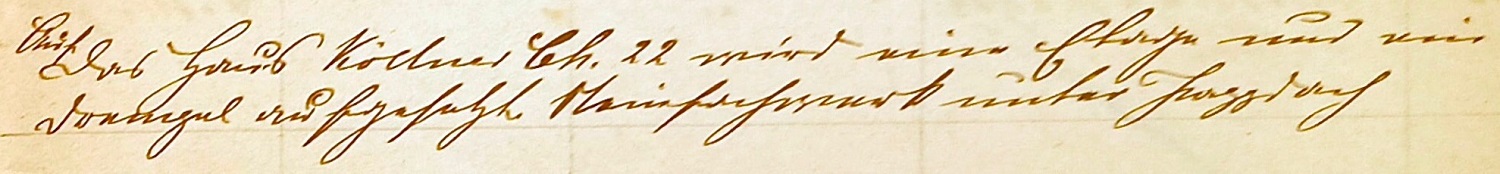 Auf das Haus Köllner Ch. 22 wird eine Etage und ein
Drempel aufgesetzt Steinfachwerk unter Pappdach